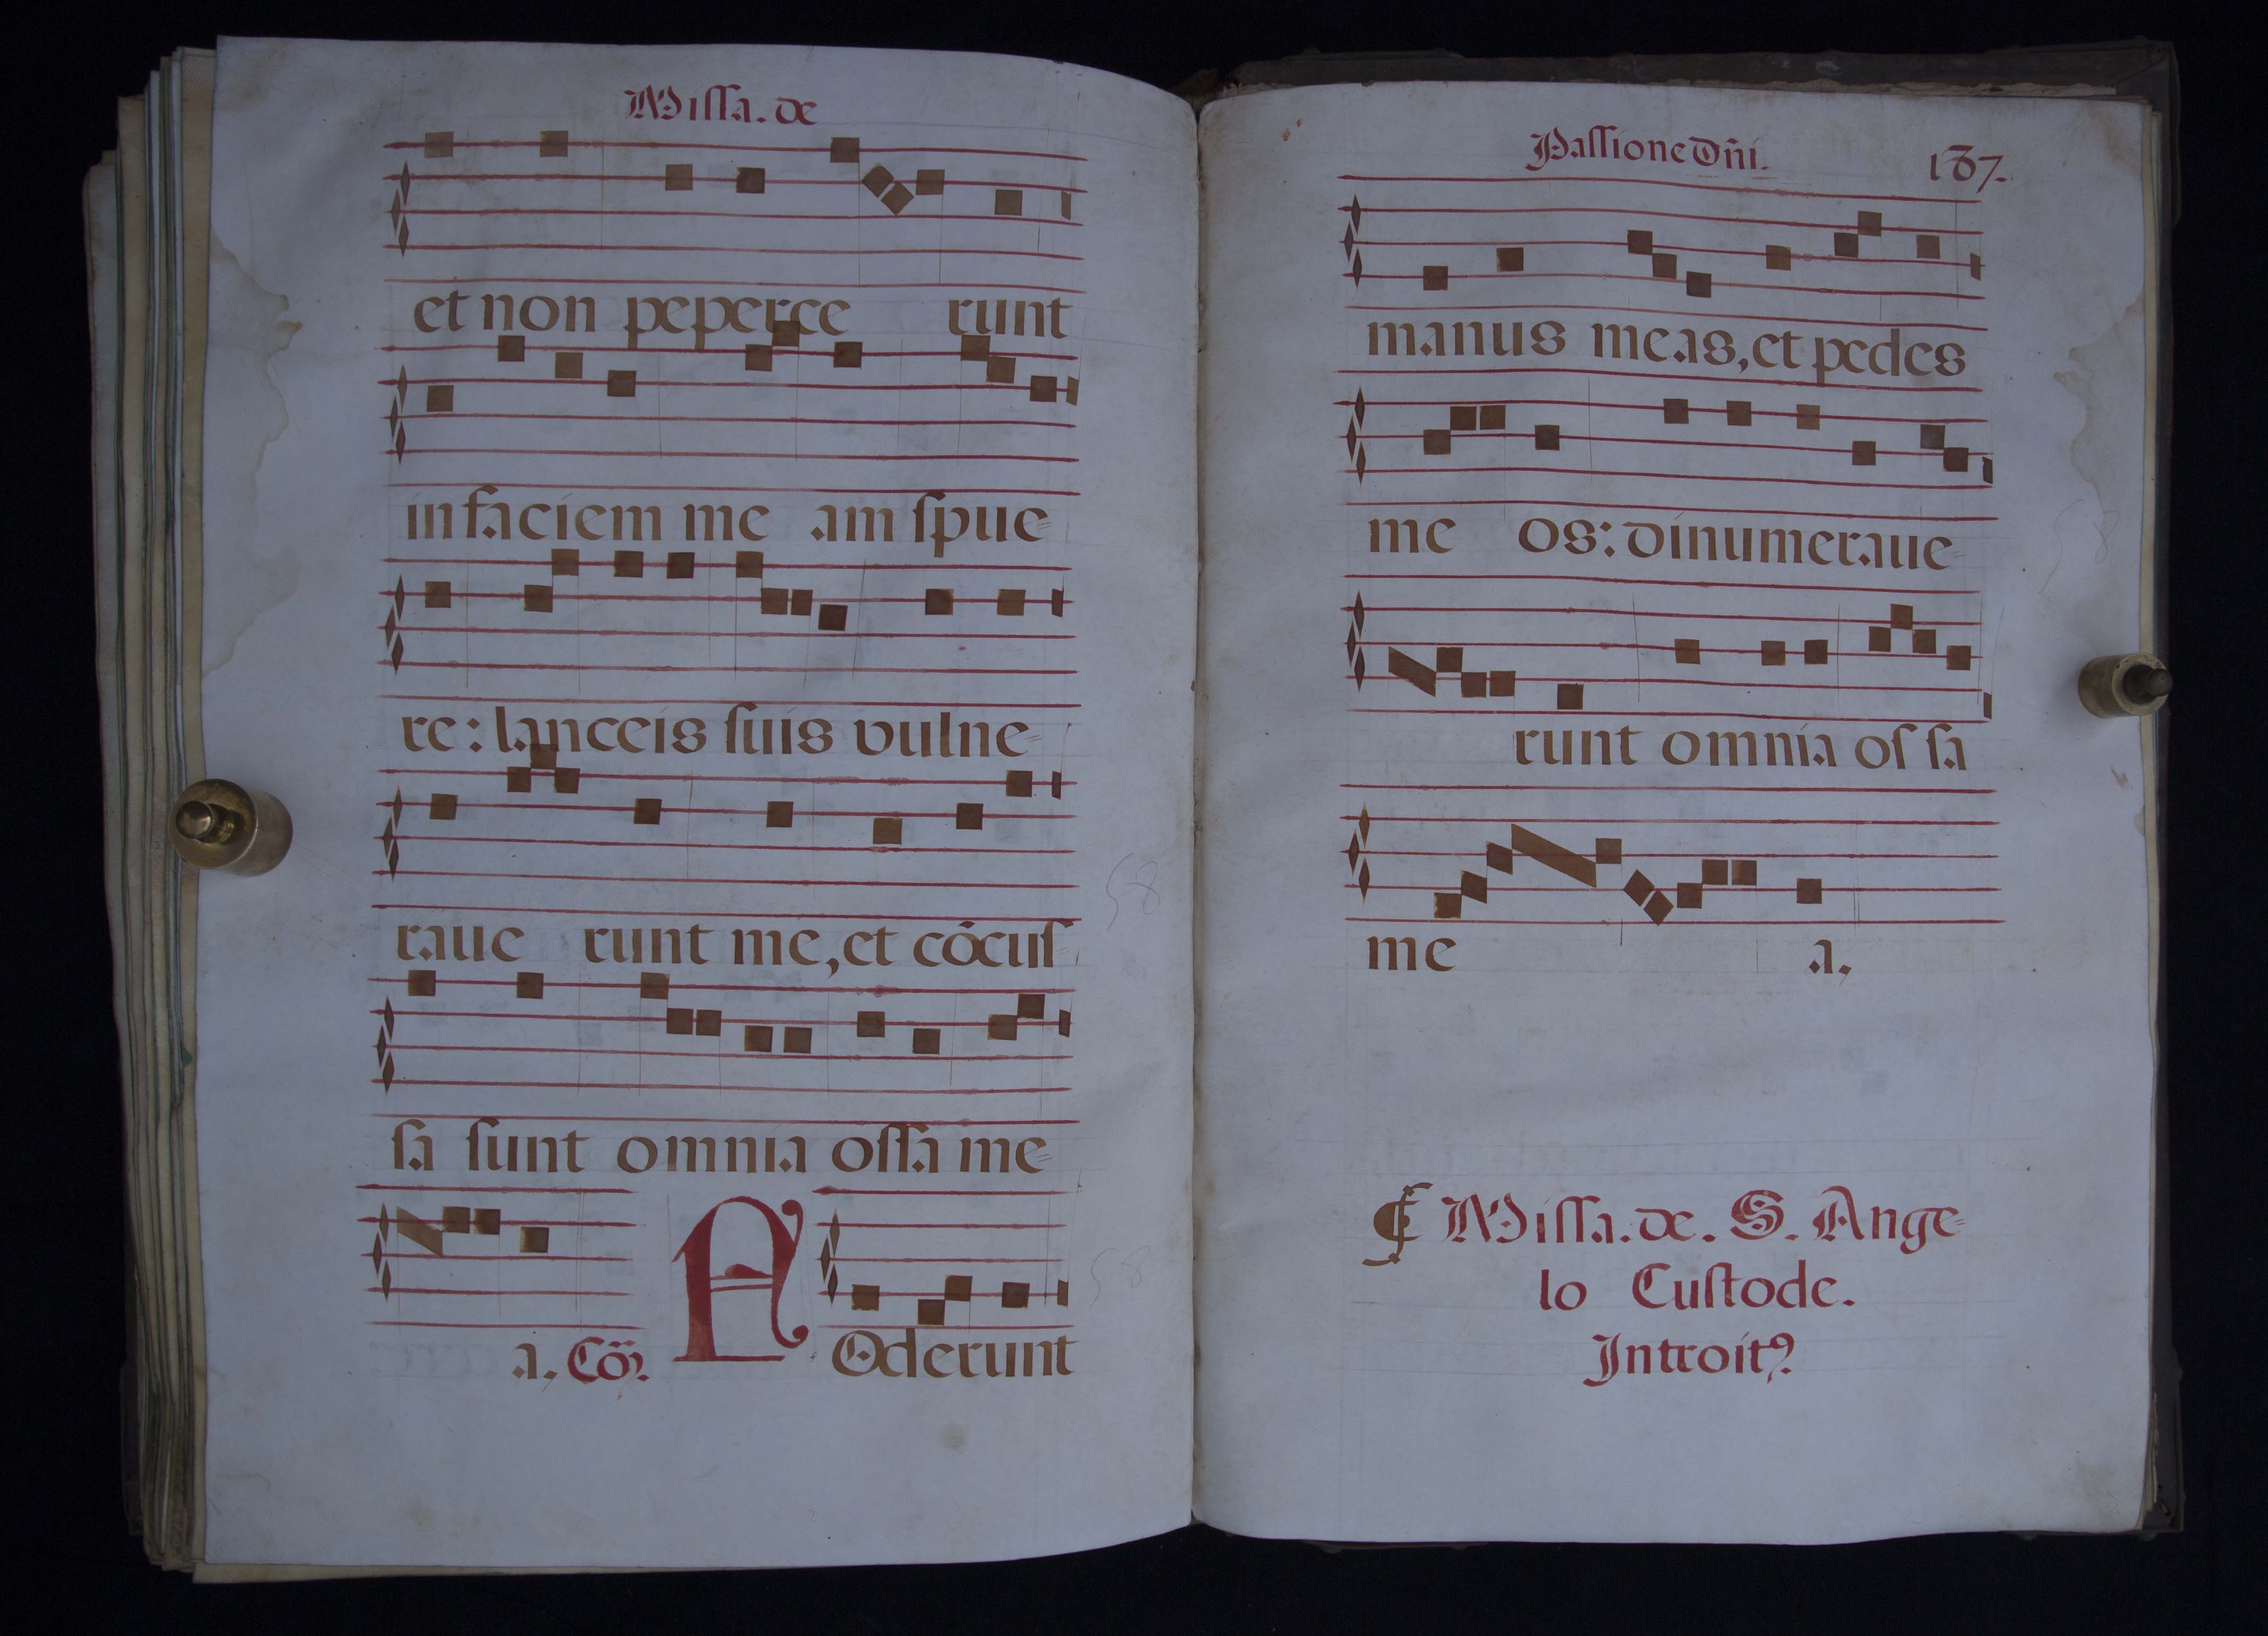 Missa. de
et non peperce runt
in faciem me am spue=
re: lanceis suis vulne=
raue runt me, et cōcus=
sa sunt omnia ossa me=
a. Cō. F Oderunt
Passione Dñi. 187.
manus meas, et pedes
me os: dinumeraue=
runt omnia os sa
me a.
¶ Missa. de. S. Ange=
lo Custode.
Introitꝰ.